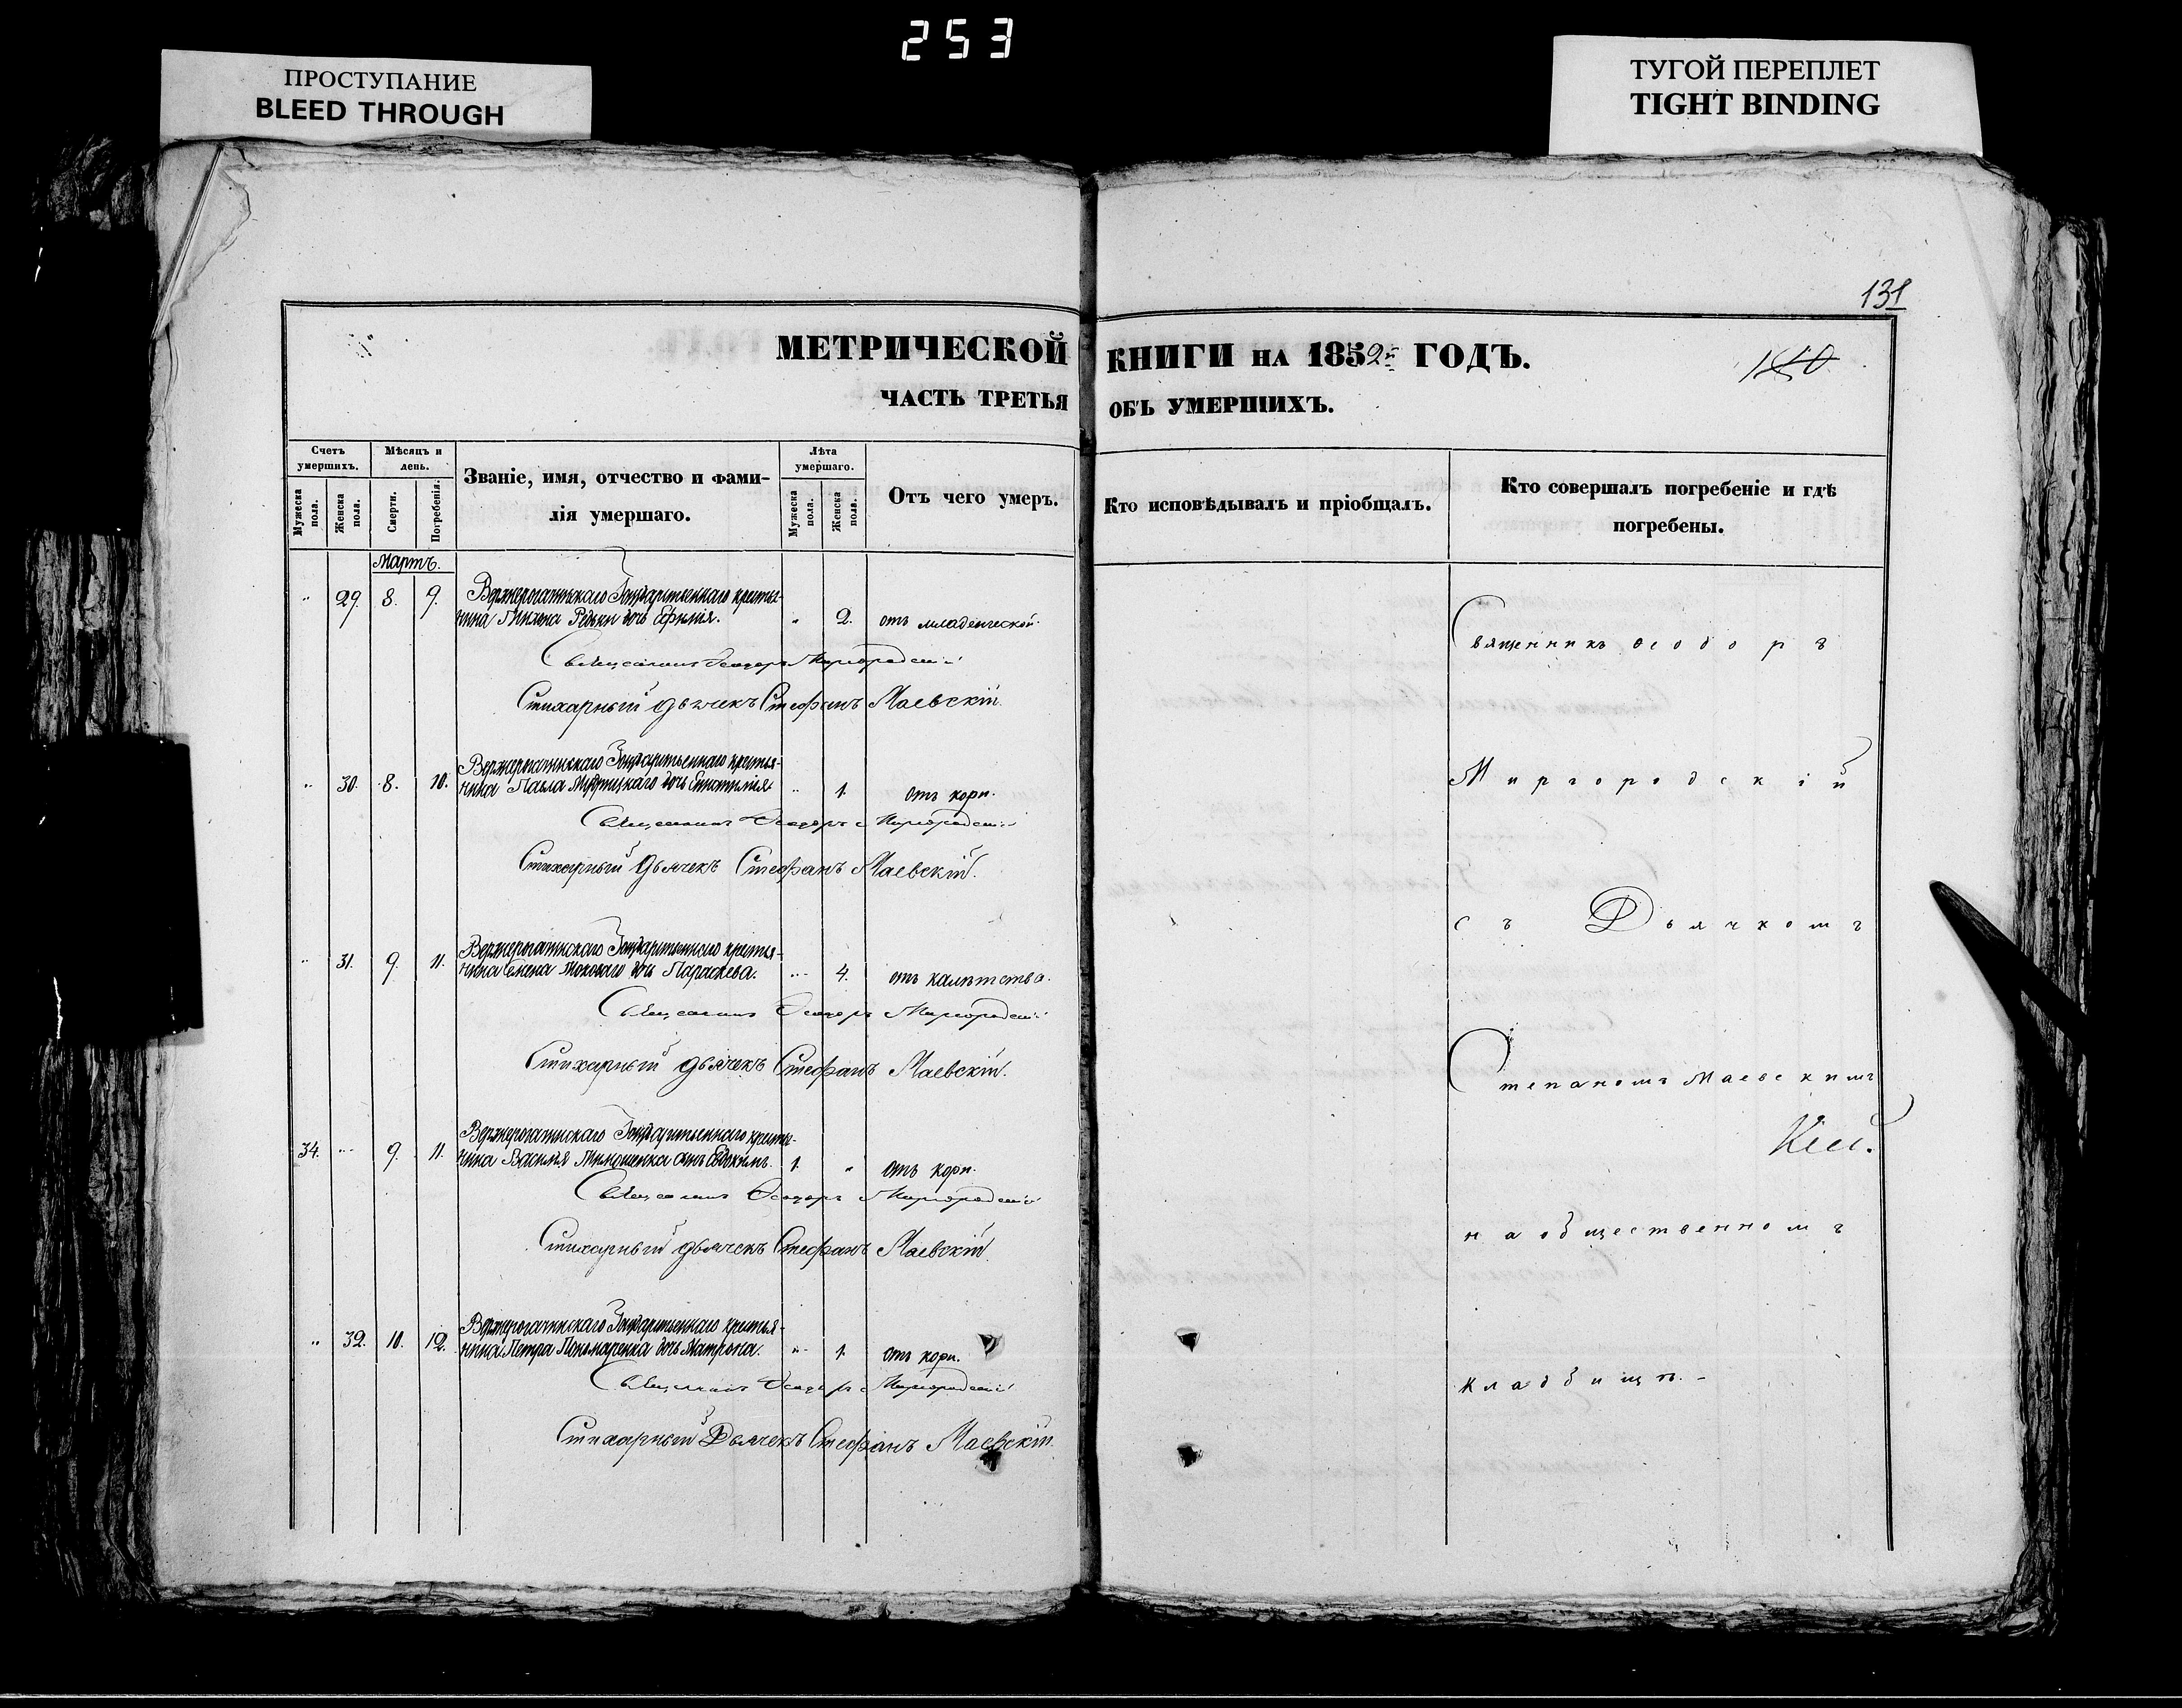 253
ПРОСТУПАНИЕ
BLEED THROUGH
ТУГОЙ ПЕРЕПЛЕТ
TIGHT BINDING
131
140
МЕТРИЧЕСКОЙ КНИГИ НА 1852й ГОДЪ.
ЧАСТЬ ТРЕТЬЯ ОБЪ УМЕРШИХЪ.
Счетъ умершихъ.
Мужеска пола.
Женска пола.
Мѣсяцъ и день.
Смерти.
Погребенія.
Званіе, имя, отчество и фами-
лія умершаго.
Лѣта умершаго.
Мужеска пола.
Женска пола.
Отъ чего умеръ.
Кто исповѣдывалъ и пріобщалъ.
Кто совершалъ погребеніе и гдѣ
погребены.
Мартъ.
" 29. 8. 9. Верхнерогачикскаго Государственнаго кресть-
янина Редьки дочь Ефимія. " 2. отъ младенческой.
Священникъ Феодоръ Миргородскій
Стихарный дьячекъ Стефанъ Маевскій.
" 30. 8. 10. Верхнерогачикскаго Государственнаго крестья-
нина Павла дочь " 1. отъ кори.
Священникъ Феодоръ Миргородскій
Стихарный дьячекъ Стефанъ Маевскій.
" 31. 9. 11. Верхнерогачикскаго Государственнаго крестья-
нина дочь Параскева. " 4. отъ
Священникъ Феодоръ Миргородскій
Стихарный дьячекъ Стефанъ Маевскій.
34. " 9. 11. Верхнерогачикскаго Государственнаго кресть-
нина Василія Тимошенка сынъ Евдокимъ. 1. " отъ кори.
Священникъ Феодоръ Миргородскій
Стихарный дьячекъ Стефанъ Маевскій.
" 32. 10. 12. Верхнерогачикскаго Государственнаго крестья-
нина Петра Пономаренка дочь Матрона. " 1. отъ кори.
Священникъ Феодоръ Миргородскій
Стихарный Дьячекъ Стефанъ Маевскій.
Священникъ Феодоръ
Миргородскій
съ Дьячкомъ
Степаномъ Маевскимъ
на общественномъ
кладбищѣ.-